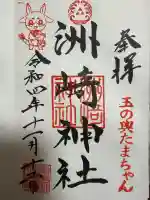 奉拝
玉の輿たまちゃん
洲崎神社
令和四年十二月十二日